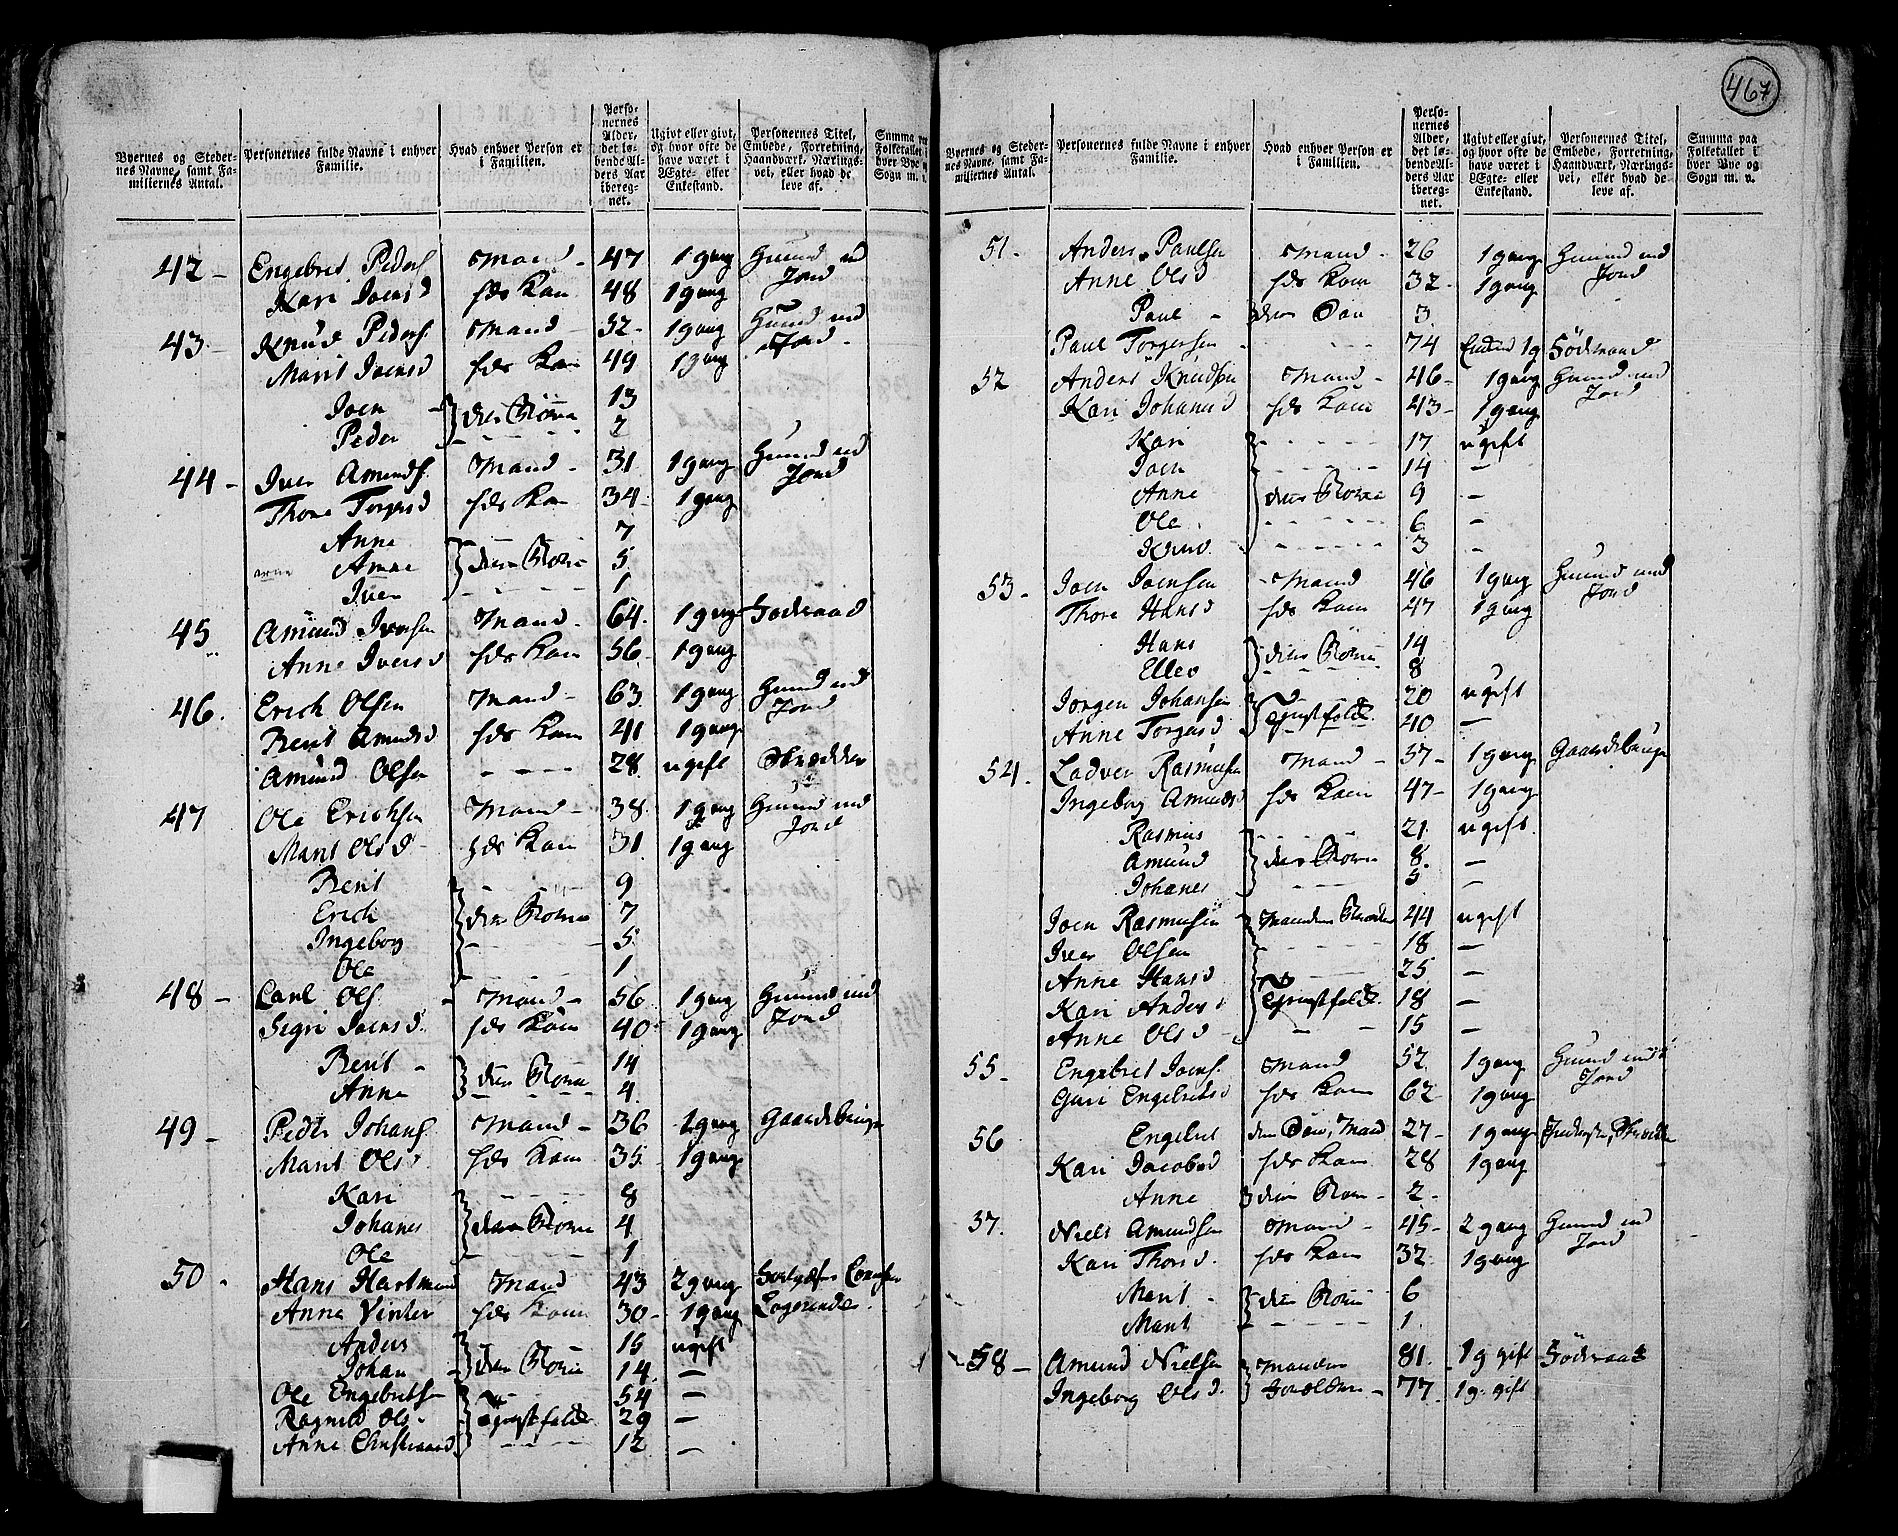 467
Byernes og Stedernes Navne, samt Familiernes Antal.
Personernes fulde Navne i enhver Familie.
Hvad enhver Person er i Familien.
Personernes Alder, det løbende Alders Aar iberegnet.
Ugivt eller givt, og hvor ofte de have været i Ægte- eller Enkestand.
Personernes Titel, Embede, Forretning, Haandværk, Næringsvei, eller hvad de leve af.
Summa
Folketallet
hver Bye
Sogn m. v.
42 – Engebret Peders Mand – 47 1 gang Huusmd
Kari Joensd hds Kone 48 1 gang Jord
43 – Knud Peders Mand – 32 – 1 gang Huusmd
Marit Joensd hds Kone 49 1 gang Jord
Joen deres Børn 13
Peder 7
44 – Iver Amunds Mand – 31 1 gang Huusmd
Thore Torgersd hds Kone 34 1 gang Jord
Anne 7
Anne deres Børn 5
Iver 1
45 Amund Iversen Mand – 64 1 gang
Anne Iversd hds Kone 56 1 gang
46. Erich Olsen Mand – 63 1 gang Huusmd
Berit Amundsd hds Kone 41 1 gang Jord
Amund Olsen 28 ugift Skrædder
47 Ole Erichsen Mand – 38 1 gang Huusmd
Marit Olsd hds Kone 31 1 gang Jord
Berit 9
Erich deres Børn 7
Ingeborg 5
Ole 1
48 – Carl Ols Mand – 56 1 gang Huusmd
Segri Joensd hds Kone 40 1 gang Jord
Berit deres Børn 14
Anne 4
49 – Peder Johans Mand – 36 1 gang Gaardebruger
Marit Olsd hds Kone 35 1 gang
Kari 8
Johanes deres Børn 4
Ole 1
50 – Hans Hartmand Mand 43 2 gang
Anne Vinter hds Kone 30 – 1 gang
Anders 15 ugift
Johan deres Børn 14 –
Ole Engebrets 54 –
Ragnild Ols 29 –
Anne 12 –
Byernes og Stedernes Navne, samt Familiernes Antal.
Personernes fulde Navne i enhver Familie.
Hvad enhver Person er i Familien.
Personernes Alder, det løbende Alders Aar iberegnet.
Ugivt eller givt, og hvor ofte de have været i Ægte- eller Enkestand.
Personernes Titel, Embede, Forretning, Haandværk, Næringsvei, eller hvad de leve af.
Summa paa Folketallet i hver Bye og Sogn m. v.
51 – Anders Paulsen Mand – 26 1 gang Huusmd
Anne Olsd hds Kone 32 – 1 gang Jord
Paul deres Søn 3
Paul Torgersen 74
52 Anders Knudsen Mand – 46 – 1 gang Huusmd
Kari Johansd hds Kone 43 – 1 gang Jord
Kari 17 ugift
Joen 14 –
Anne deres Børn 9 –
Ole 6 –
Knud 3 –
53 – Joen Joensen Mand 46 1 gang Huusmd
Thore Hansd hds Kone 47 1 gang Jord
Hans deres Børn 14
Ellev 8
Jørgen Johansen 20 ugift
Anne Torgersd 40 –
54 – Ladver Rasmusen Mand – 57 – 1 gang Gaardebruger
Ingeborg Amundsd hds Kone 47 – 1 gang
Rasmus 21 ugift
Amund deres Børn 8 –
Johanes 5 –
Joen Rasmusen 44 ugift
Iver Olsen 18 –
Anne Hansd 25 –
Kari Andersd 18 –
Anne Olsd 15 –
55 – Engebret Joens Mand 52 1 gang Huusmd
Guri Engebretsd hds Kone 62 1 gang Jord
56 Engebret deres Søn, Mand 27 – 1 gang
Kari Jacobsd hds Kone 28 1 gang
Anne deres Børn – 2 –
57. Niels Amundsen Mand – 45 – 2 gang Huusmd
Kari Thorsd. hds Kone 32 1 gang Jord
Marit deres Børn 6
Marit 1
58 – Amund Nielsen Mandens 81 1 g gift
Ingeborg Olsd. Forældre – 77 1 g. gift